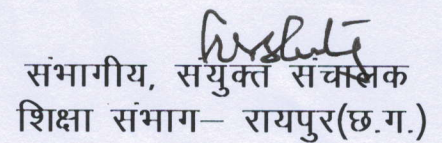 संभागीय, संयुक्त संचालक
शिक्षा संभाग– रायपुर(छ.ग.)